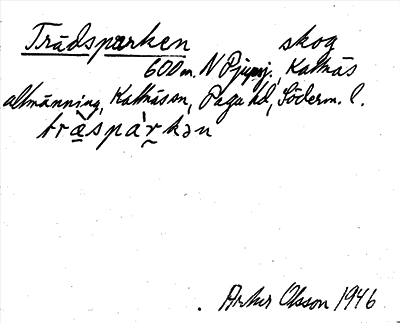 Trädsparken skog
600 m. N Djupsj., Kattnäs
allmänning, Kattnäs sn, Daga hd, Söderm. l.
træ̀spàrkən
Artur Olsson 1946